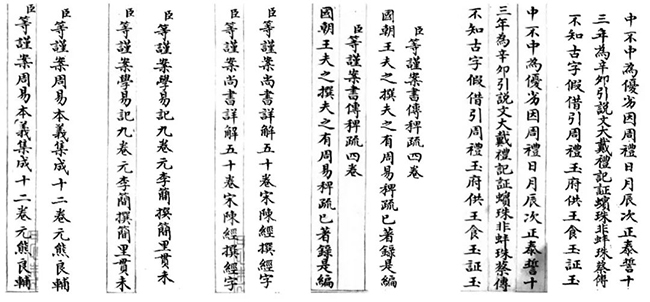 中不中為優劣因周禮日月辰次正泰誓十
三年為辛卯引説文大戴禮記証蠙珠非蚌珠蔡傳
不知古字假借引周禮玉府供王食玉証玉
中不中為優劣因周禮日月辰次正泰誓十
三年為辛卯引説文大戴禮記証蠙珠非蚌珠蔡傳
不知古字假借引周禮玉府供王食玉証玉
臣等謹案書傳稗疏四卷
國朝王夫之撰夫之有周易稗疏已著錄是編
臣等謹案書傳稗疏四卷
國朝王夫之撰夫之有周易稗疏已著錄是編
臣等謹案尚書詳解五十卷宋陳經撰經字
臣等謹案尚書詳解五十卷宋陳經撰經字
臣等謹案學易記九卷元李簡撰簡里貫未
臣等謹案學易記九卷元李簡撰簡里貫未
臣等謹案周易本義集成十二卷元熊良輔
臣等謹案周易本義集成十二卷元熊良輔